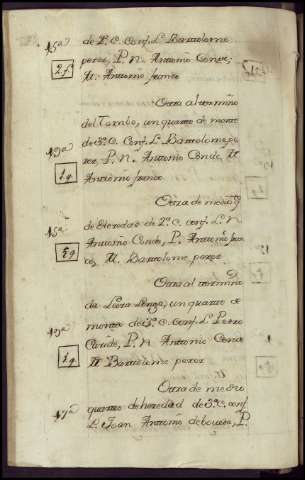 de 2ª C. Conf. L. Bartolome
perez, P. N. Antonio Conde,
M. Antonio franco
2.f
Otra al termino
del Tombo, un quarto de monte
de 3ª C. Conf. L. Bartolome pe
rez, P. N. Antonio Conde, M
Antonio franco
1q
Otra de medio q
de heredad de 2ª C. conf. L. N
Antonio Conde, P. Antonio fran
co, M. Bartolome perez
Otra al termino
da Longa, un quarto de
monte de 3ª C. Conf. L. Pedro
P. N. Antonio Conde
M Bartolome perez
1q
Otra de medio
quarto de heredad de 3ª C. conf
L. Joan Antonio de P.